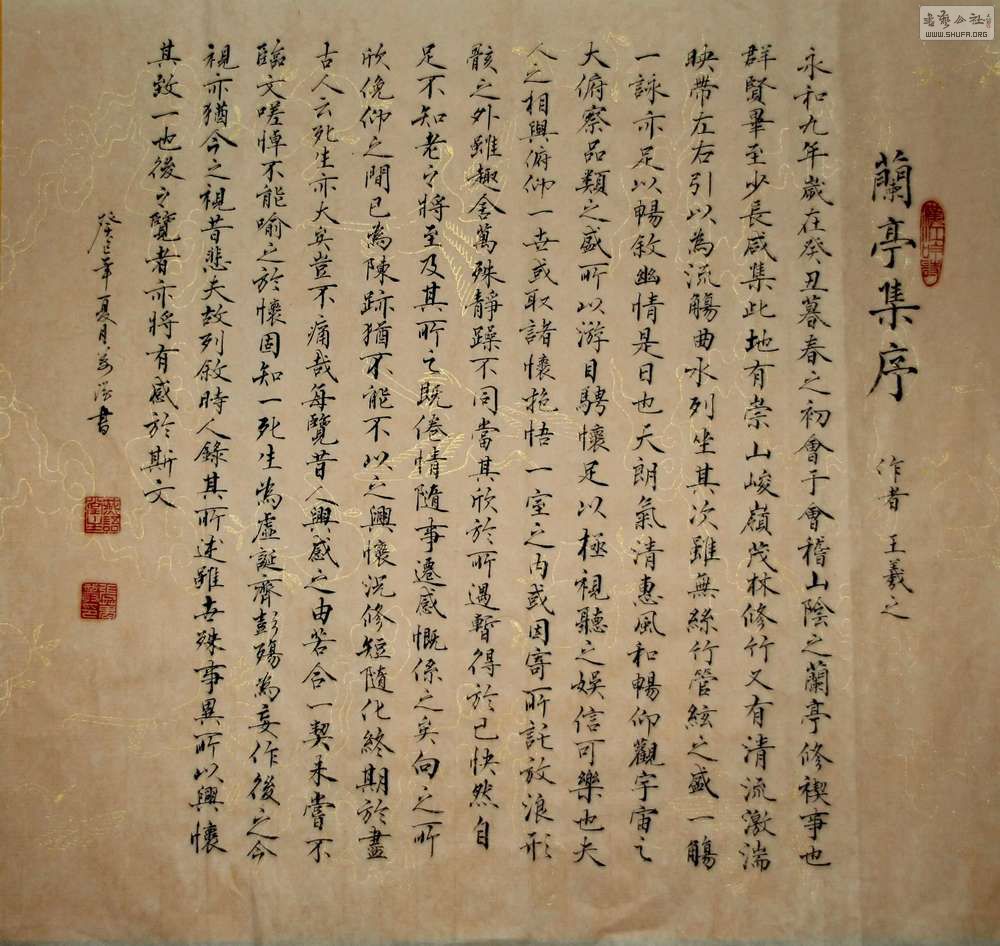 書藝公社
WWW.SHUFA.ORG
蘭亭集序 作者 王羲之
永和九年歲在癸丑暮春之初會于會稽山陰之蘭亭修禊事也
群賢畢至少長咸集此地有崇山峻嶺茂林修竹又有清流激湍
映帶左右引以為流觴曲水列坐其次雖無絲竹管絃之盛一觴
一詠亦足以暢敘幽情是日也天朗氣清惠風和暢仰觀宇宙之
大俯察品類之盛所以游目騁懷足以極視聽之娛信可樂也夫
人之相與俯仰一世或取諸懷抱悟一室之內或因寄所託放浪形
骸之外雖趣舍萬殊靜躁不同當其欣於所遇暫得於己快然自
足不知老之將至及其所之既倦情隨事遷感慨係之矣向之所
欣俛仰之間已為陳跡猶不能不以之興懷況修短隨化終期於盡
古人云死生亦大矣豈不痛哉每覽昔人興感之由若合一契未嘗不
臨文嗟悼不能喻之於懷固知一死生為虛誕齊彭殤為妄作後之今
視亦猶今之視昔悲夫故列敘時人錄其所述雖世殊事異所以興懷
其致一也後之覽者亦將有感於斯文
癸巳年夏月書